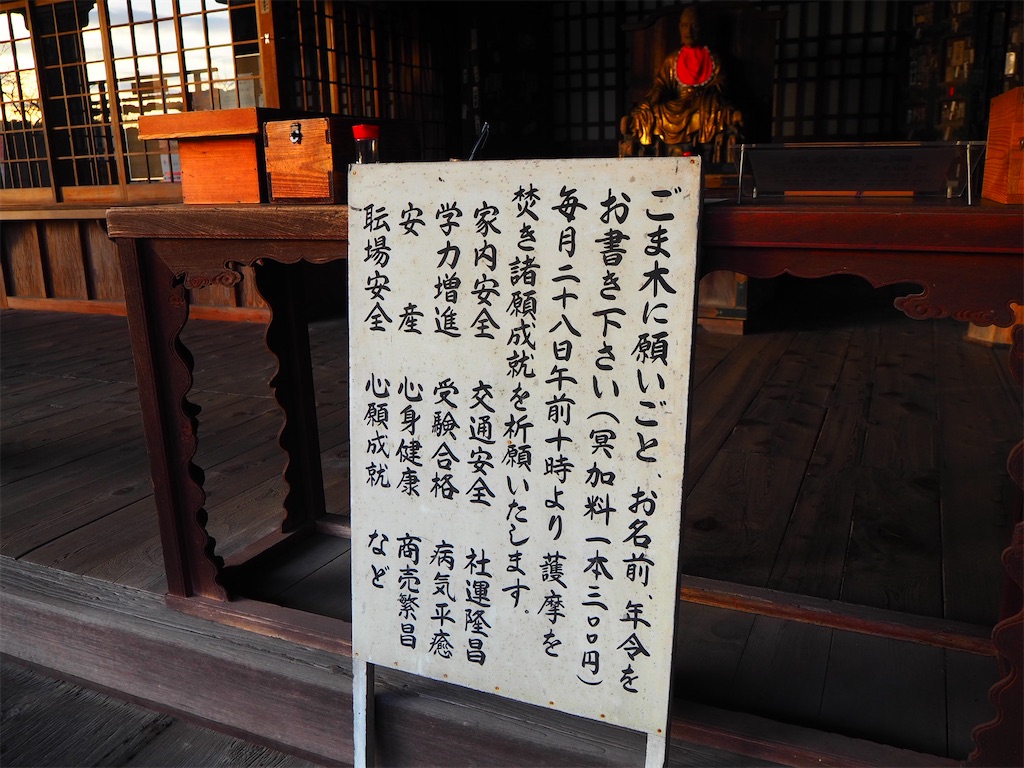 ごま木に願いごと、お名前、年令を
お書き下さい（冥加料一本三〇〇円）
毎月二十八日午前十時より護摩を
焚き諸願成就を祈願いたします。
家内安全 交通安全 社運隆昌
学力増進 受験合格 病気平癒
安産 心身健康 商売繁昌
転場安全 心願成就 など